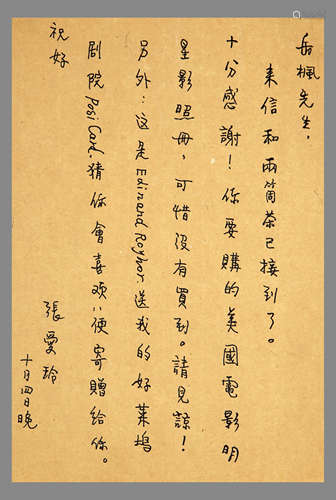 岳楓先生，
来信和兩筒茶已接到了。
十分感謝！你要購的美國電影明
星影照册，可惜没有買到。請見諒！
另外：这是Edinand Roynor.送我的好莱塢
剧院Posi Card.猜你會喜欢：便寄贈给你。
祝好
張愛玲
十月四日晚